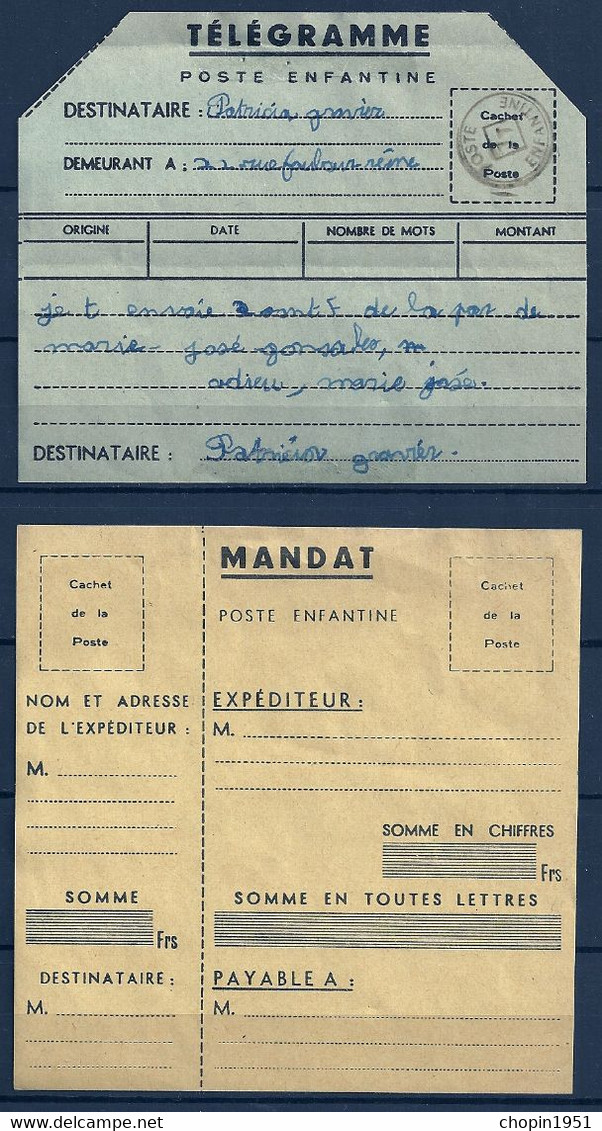 TÉLÉGRAMME
POSTE ENFANTINE
DESTINATAIRE : Patricia gravier
DEMEURANT A : 22 rue
Cachet
de la
Poste
POSTE ENFANTINE
ORIGINE DATE NOMBRE DE MOTS MONTANT
je t envoie de la par de
marie - josé gonsales, m
adieu, marie josée.
DESTINATAIRE : Patricia gravier.
MANDAT
POSTE ENFANTINE
Cachet
de la
Poste
Cachet
de la
Poste
NOM ET ADRESSE
DE L'EXPÉDITEUR :
M.
SOMME
Frs
DESTINATAIRE :
M.
EXPÉDITEUR :
M.
SOMME EN CHIFFRES
Frs
SOMME EN TOUTES LETTRES
PAYABLE A :
M.
chopin1951